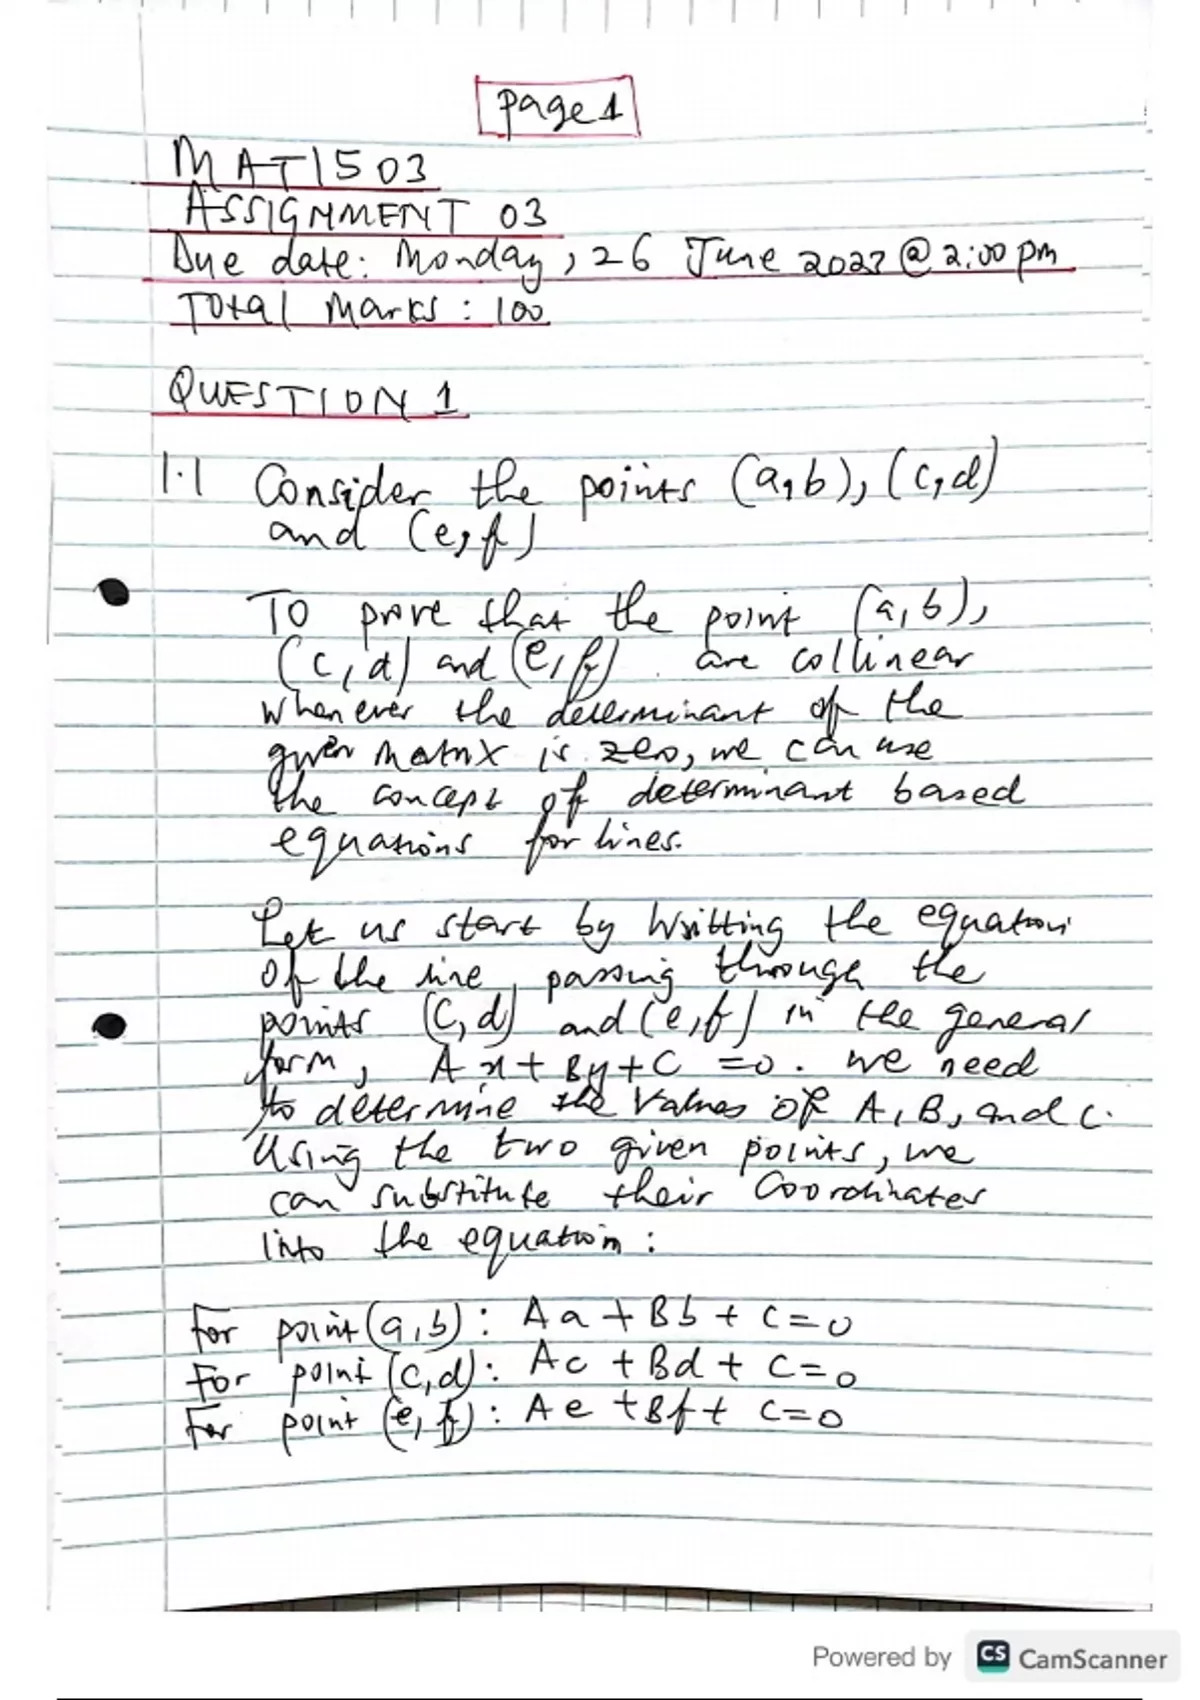 page 1
MAT1503
ASSIGNMENT 03
Due date: Monday, 26 June 2023 @ 2:00 pm
Total Marks: 100
QUESTION 1
1.1 Consider the points (a,b), (c,d)
and (e,f)
To prove that the point (a,b),
(c,d) and (e,f) are collinear
whenever the determinant of the
given matrix is zero, we can use
the concept of determinant based
equations for lines.
Let us start by writting the equation
of the line passing through the
points (c,d) and (e,f) in the general
form, Ax+By+C =0. we need
to determine the values of A, B, and C.
Using the two given points, we
can substitute their coordinates
into the equation:
For point (a,b): Aa + Bb + C=0
For point (c,d): Ac + Bd + C=0
For point (e,f): Ae + Bf + C=0
Powered by CS CamScanner